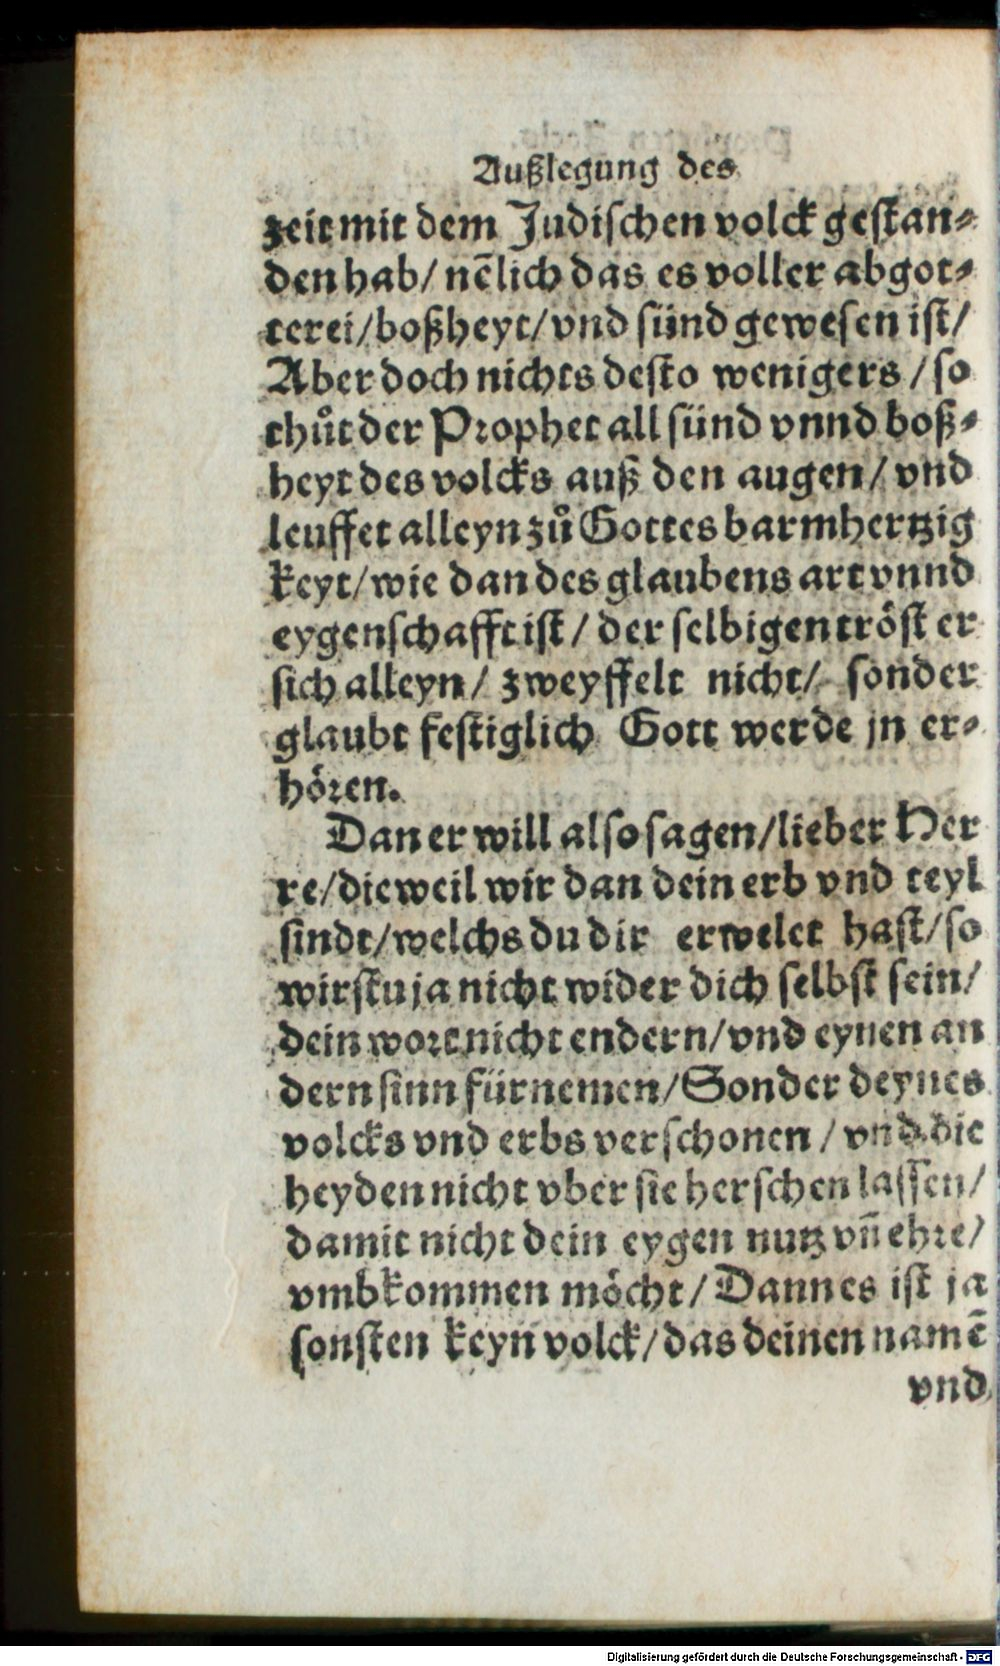 Außlegung des
zeit mit dem Judischen volck gestan⸗
den hab/ nẽlich das es voller abgot⸗
terei/boßheyt/vnd sünd gewesen ist/
Aber doch nichts desto wenigers /so
thůt der Prophet all sünd vnnd boß⸗
heyt des volcks auß den augen/ vnd
leuffet alleyn zů Gottes barmhertzig
keyt/wie dan des glaubens art vnnd
eygenschafft ist/ der selbigen tröst er
sich alleyn/ zweyffelt nicht/ sonder
glaubt festiglich Gott werde jn er⸗
hören.
Dan er will also sagen/lieber Her
re/dieweil wir dan dein erb vnd teyl
sindt/welchs du dir erwelet hast/so
wirstu ja nicht wider dich selbst sein/
dein wort nicht endern/vnd eynen an
dern sinn fürnemen/Sonder deynes
volcks vnd erbs verschonen / vnd die
heyden nicht vber sie herschen lassen/
damit nicht dein eygen nutz vñ ehre/
vmbkommen möcht/ Dann es ist ja
sonsten keyn volck/das deinen namẽ
vnd
Digitalisierung gefördert durch die Deutsche Forschungsgemeinschaft - DFG